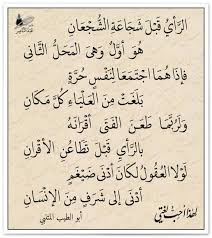 الرَّأْيُ قَبْلَ شَجَاعَةِ الشُّجْعَانِ
هُوَ أَوَّلٌ وَهِيَ المَحَلُّ الثَّانِي
فَإِذَا هُمَا اجْتَمَعَا لِنَفْسٍ حُرَّةٍ
بَلَغَتْ مِنَ العَلْيَاءِ كُلَّ مَكَانِ
وَلَرُبَّمَا طَعَنَ الفَتَى أَقْرَانَهُ
بِالرَّأْيِ قَبْلَ تَطَاعُنِ الأَقْرَانِ
لَوْلَا العُقُولُ لَكَانَ أَدْنَى ضَيْغَمٍ
أَدْنَى إِلَى شَرَفٍ مِنَ الإِنْسَانِ
أبو الطيب المتنبي